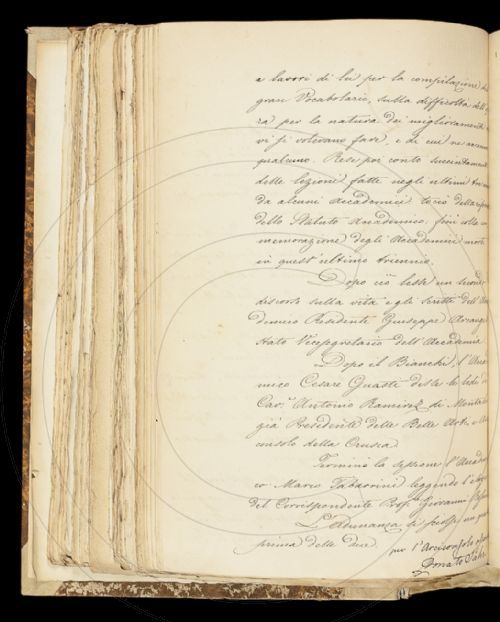 e lavori di lei per la compilazione del
gran Vocabolario, sulla difficoltà dell'
ra per la natura dei miglioramenti
vi si volevano fare, e di cui ne
qualcuno. Rese poi conto succintamente
delle lezioni fatte negli ultimi tre
da alcuni Accademici
dello Statuto Accademico, finì colla
memorazione degli Accademici morti
in quest'ultimo triennio.
Dopo ciò lesse un
discorso sulla vita e gli scritti dell'
demico Residente Giuseppe
stato Vicesegretario dell'Accademia
Dopo il Bianchi, l'Acca
mico Cesare Guasti disse le lodi
Cav.r Antonio Ramirez di Montalvo
già Presidente delle Belle Arti e
consolo della Crusca.
Terminò la sessione l'Accade
co Marco Tabarrini leggendo l'elogio
del Corrispondente Prof.re Giovanni
L'Adunanza si sciolse
prima delle due.
per l'Arciconsolo
Donato